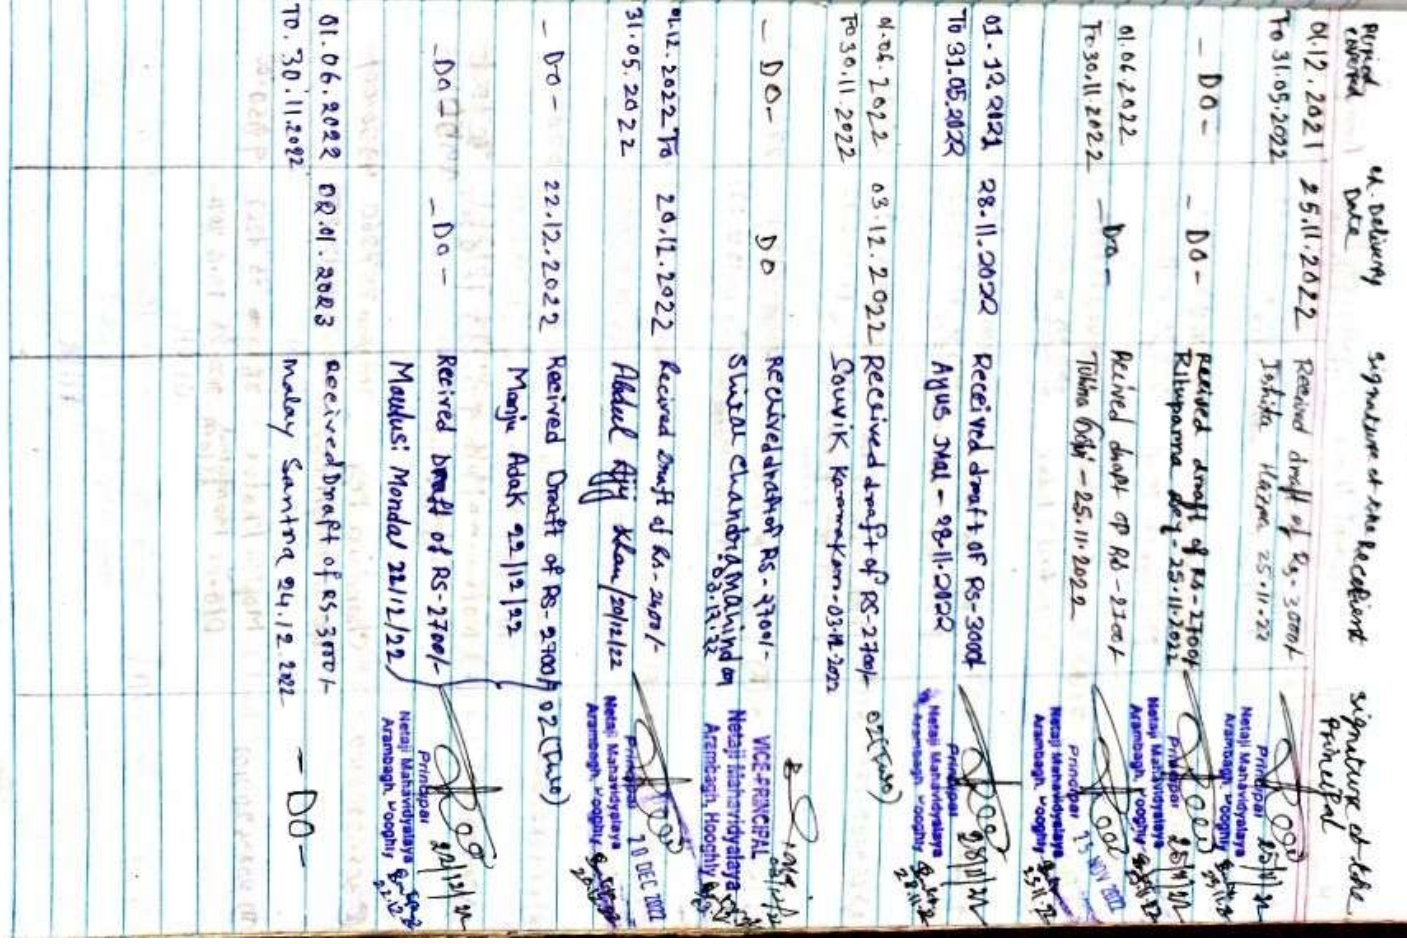 Period covered
Ch. Delivery Date
Signature of the Recepient
Signature of the Principal
01.12.2021
To 31.05.2022
25.11.2022
Received draft of Rs-3000/-
Ishita Hazra 25.11.22
25/11/22
Principal
Netaji Mahavidyalaya
Arambagh, Hooghly
- DO -
- DO -
Received draft of Rs-2700/-
Rituparna Dey - 25.11.2022
25/11/22
Principal
Netaji Mahavidyalaya
Arambagh, Hooghly
01.06.2022
To 30.11.2022
- Do -
Received draft of Rs-2700/-
Tuhina - 25.11.2022
25 NOV 2022
Principal
Netaji Mahavidyalaya
Arambagh, Hooghly
01.12.2021
To 31.05.2022
28.11.2022
Received draft of Rs-3000/-
Ayus Mal - 28.11.2022
28/11/22
Principal
Netaji Mahavidyalaya
Arambagh, Hooghly
01.06.2022
To 30.11.2022
03.12.2022
Received draft of RS-2700/-
02 (Two)
Souvik Karmakar - 03.12.2022
- DO -
DO
Received draft of RS-2700/-
Shital Chandra Mahindar
03.12.22
VICE-PRINCIPAL
Netaji Mahavidyalaya
Arambagh, Hooghly
01.12.2022 To
31.05.2022
20.12.2022
Received Draft of Rs-2400/-
Abdul Ajij Khan/20/12/22
20 DEC 2022
Principal
Netaji Mahavidyalaya
Arambagh, Hooghly
- DO -
22.12.2022
Recived Draft of Rs-2700/-
02 (Two)
Manju Adak 22/12/22
- DO -
- DO -
Recived Draft of RS-2700/-
Moulusi Mondal 22/12/22
22/12/22
Principal
Netaji Mahavidyalaya
Arambagh, Hooghly
01.06.2022
TO. 30.11.2022
02.01.2023
Received Draft of RS-3000/-
Malay Santra 24.12.2022
- DO -